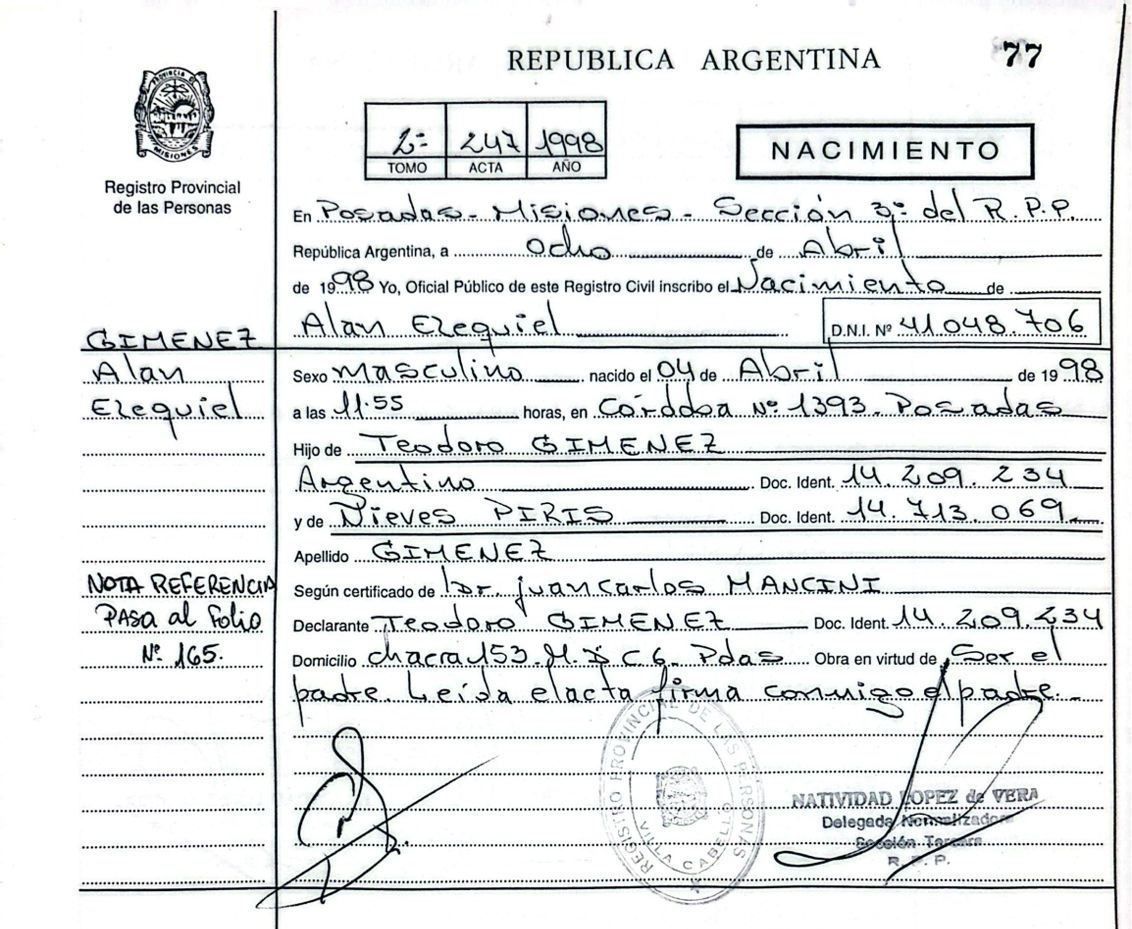 REPUBLICA ARGENTINA 77
PROVINCIA DE MISIONES
Registro Provincial
de las Personas
2º 247 1998
TOMO ACTA AÑO
NACIMIENTO
En Posadas - Misiones - Sección 3º del R.P.P.
República Argentina, a Ocho de Abril
de 1998 Yo, Oficial Público de este Registro Civil inscribo el Nacimiento de
Alan Ezequiel D.N.I. Nº 41048.706
GIMENEZ
Alan
Ezequiel
Sexo Masculino nacido el 04 de Abril de 1998
a las 11.55 horas, en Córdoba Nº 1393. Posadas
Hijo de Teodoro GIMENEZ
Argentino Doc. Ident. 14.209.234
y de Nieves PIRIS Doc. Ident. 14.713.069
Apellido GIMENEZ
Según certificado de Dr. Juan Carlos MANCINI
Declarante Teodoro GIMENEZ Doc. Ident. 14.209.234
Domicilio chacra 153. M. C 6. Pdas Obra en virtud de Ser el
padre. Leída el acta firma conmigo el padre.-
NOTA REFERENCIA
PASA al Folio
Nº 165.
REGISTRO PROVINCIAL DE LAS PERSONAS
VILLA CABELLO
NATIVIDAD LOPEZ de VERA
Delegada Normalizadora
Sección Tercera
R. P. P.